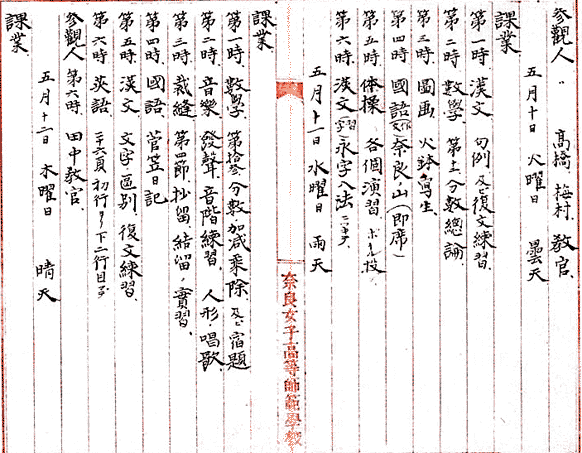 参觀人 〃 高橋 梅村 敎官
五月十日 火曜日 曇天
課業
第一時 漢文 句例及ビ復文練習、
第二時 數學 第十二分數總論
第三時 圖画 火鉢寫生、
第四時 國語(文作)奈良山(即席)
第五時 体操 各個演習、ボール投、
第六時 漢文(習字)永字八法
五月十一日 水曜日 雨天
奈良女子高等師範學校
課業、
第一時、數學、第拾参分數加減乘除及ビ宿題
第二時、音樂 發聲、音階練習、人形唱歌、
第三時、裁縫、第四節、抄留、結留、實習、
第四時、國語 菅笠日記
第五時、漢文 文字ノ區別、復文練習、
第六時、英語 二十六頁、初行ヨリ下二行目マデ
參觀人 第六時、田中敎官、
五月十二日 木曜日 晴天
課業、